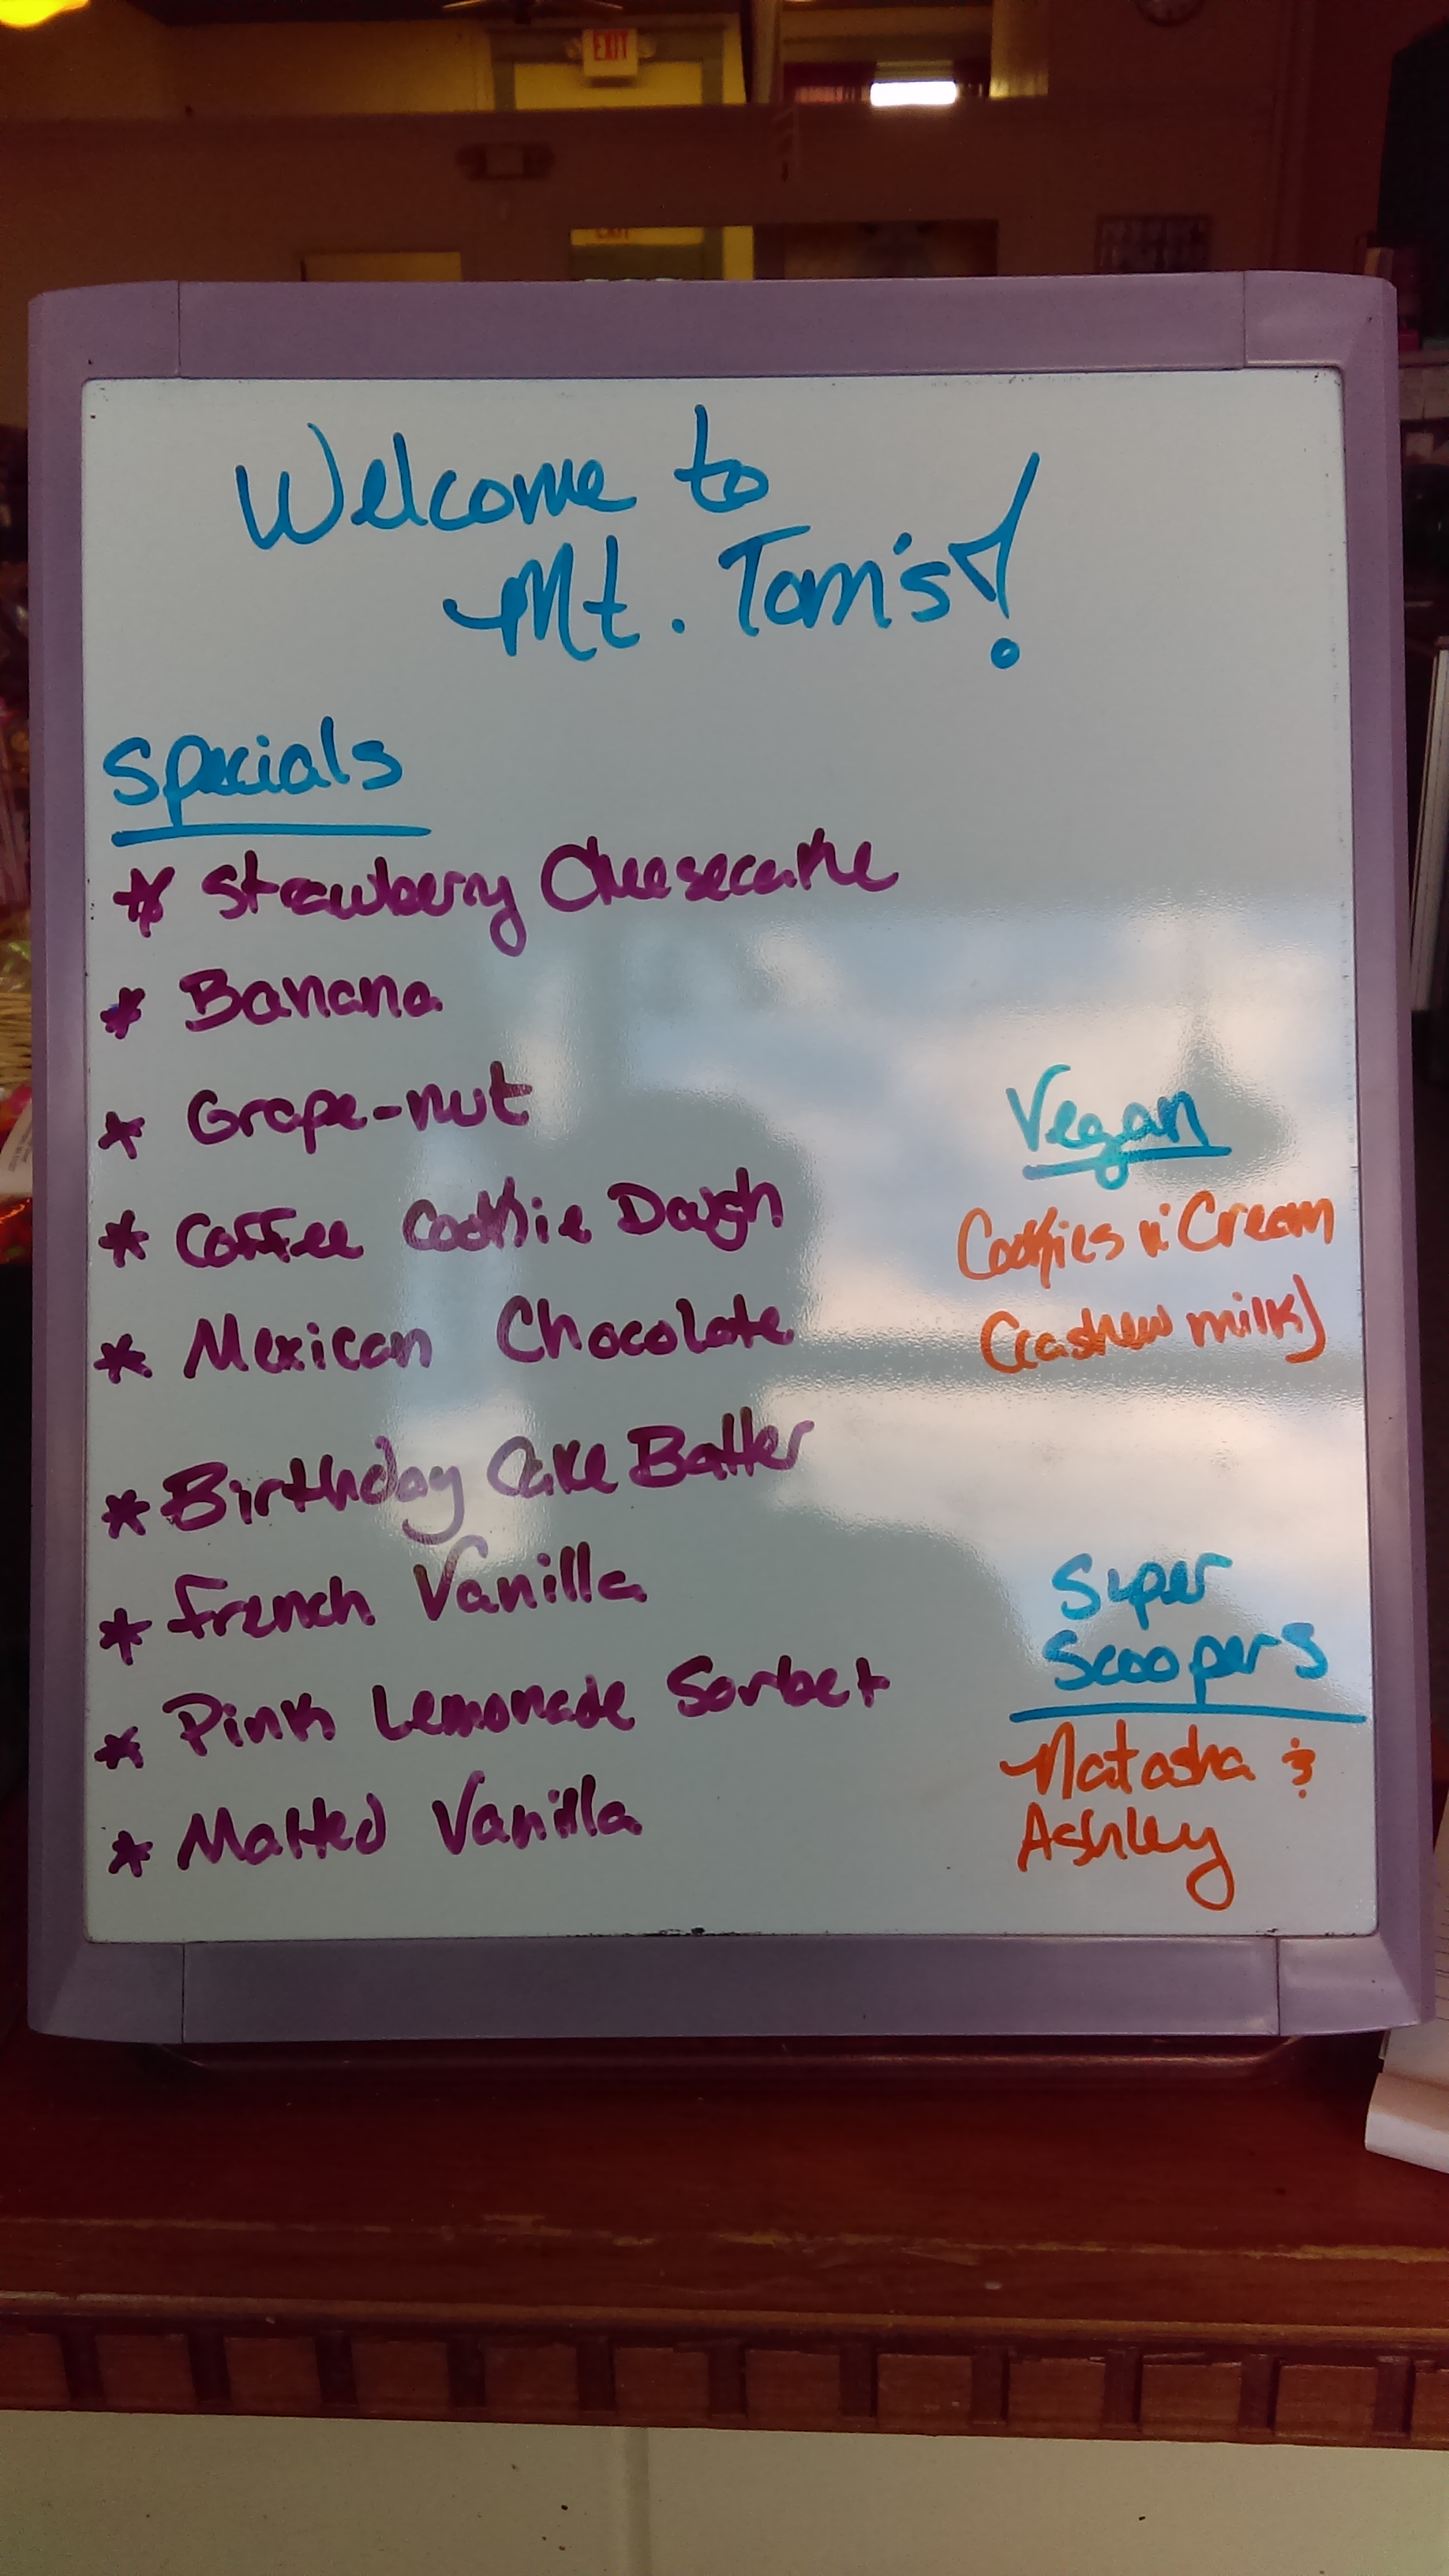 EXIT
EXIT
Welcome to
Mt. Tom's!
Specials
* Strawberry Cheesecake
* Banana
* Grape-nut
* Coffee Cookie Dough
* Mexican Chocolate
* Birthday Cake Batter
* French Vanilla
* Pink Lemonade Sorbet
* Malted Vanilla
Vegan
Cookies n' Cream
(cashew milk)
Super
Scoopers
Natasha &
Ashley